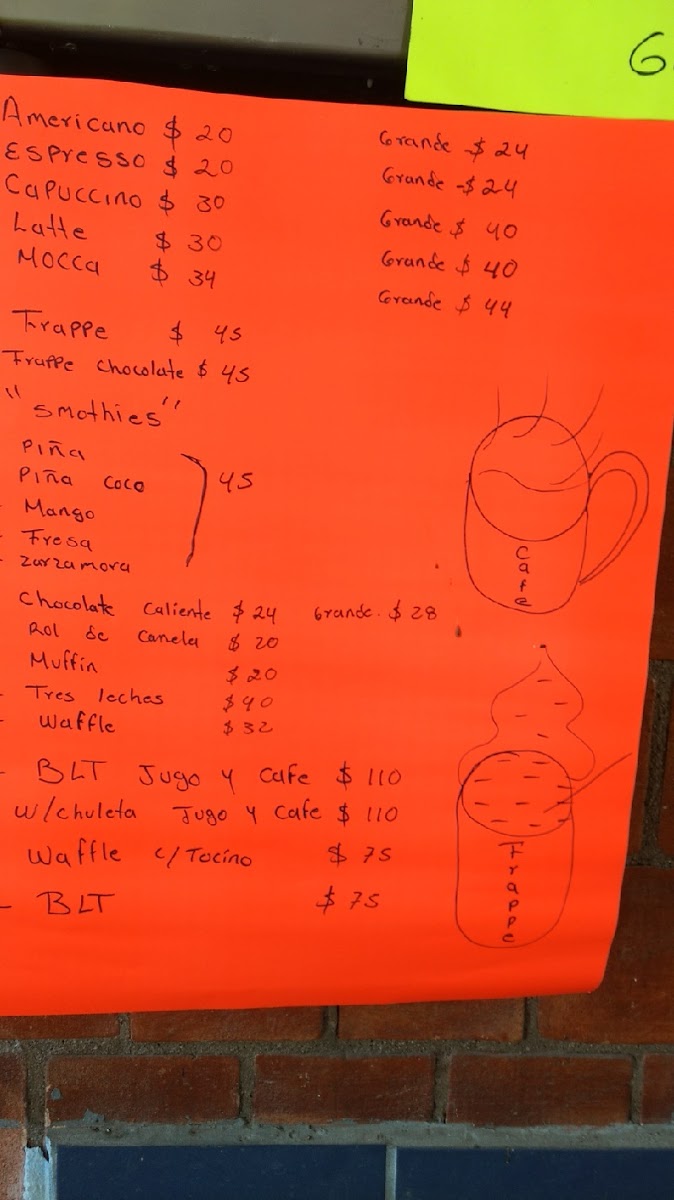 G
Americano $ 20 Grande -$ 24
Espresso $ 20 Grande -$ 24
Capuccino $ 30 Grande $ 40
Latte $ 30 Grande $ 40
Mocca $ 34 Grande $ 44
Frappe $ 45
Frappe chocolate $ 45
"Smothies"
Piña
Piña coco 45
- Mango
- Fresa
- Zarzamora
Chocolate caliente $ 24 Grande. $ 28
Rol de canela $ 20
Muffin $ 20
- Tres leches $ 40
- Waffle $ 32
- BLT Jugo y Cafe $ 110
w/chuleta Jugo y Cafe $ 110
Waffle c/Tocino $ 75
- BLT $ 75
Cafe
Frappe